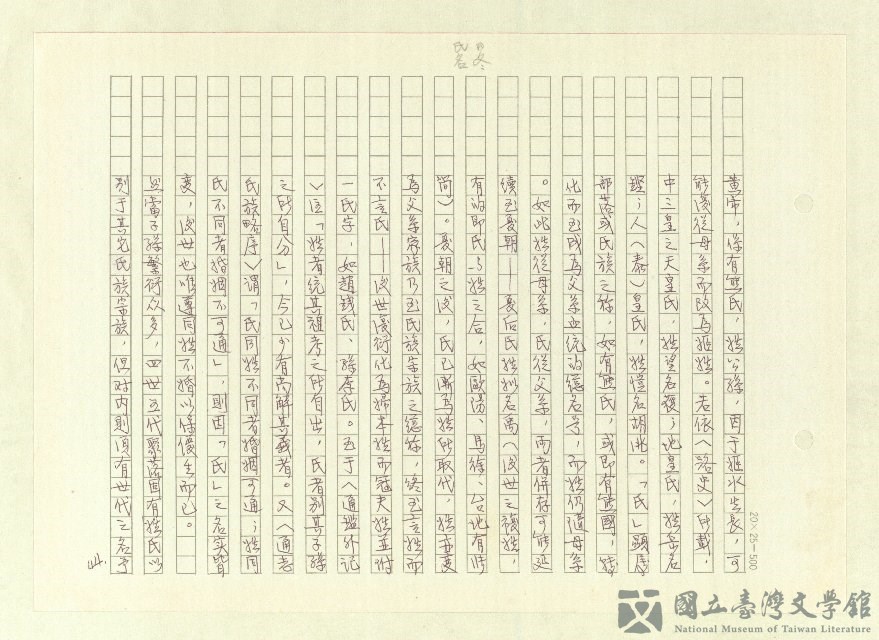 冬
氏名
黃帝，係有熊氏，姓公孫，因于姬水生長，可
能後從母系而改為姬姓。若依〈路史〉所載，
中三皇之天皇氏，姓望名獲；地皇氏，姓岳名
鏗；人〈泰〉皇氏，姓愷名胡洮。「氏」顯屬
部落或氏族之称，如有熊氏，或即有熊國，
化而至成為父系血统的總名号，而姓仍隨母系
。如此姓從母系，氏從父系，兩者併存可能延
續至夏朝——夏后氏姓姒名禹〈後世之複姓，
有的即氏与姓之合，如歐陽、馬徐、台北有
簡〉。夏朝之後，氏已漸為姓所取代，姓亦变
為父系家族乃至氏族宗族之總称，終至言姓而
不言氏——後世復衍化為婦本姓而冠夫姓並附
一氏字，如趙錢氏、孫李氏。至于〈通鑑外记
〉云「姓者统其祖考之所自出，氏者別其子孫
之所自分」，今已少有尚解其義者。又〈通志
氏族略序〉謂「氏同姓不同者婚姻可通；姓同
氏不同者婚姻不可通」，則因「氏」之名实皆
变，後世也唯遵同姓不婚以優生而已。
當子孫繁衍众多，四世五代聚落固有姓氏以
別于其它氏族宗族，但对内則須有世代之名予
44.
20×25=500
國立臺灣文學館
National Museum of Taiwan Literature